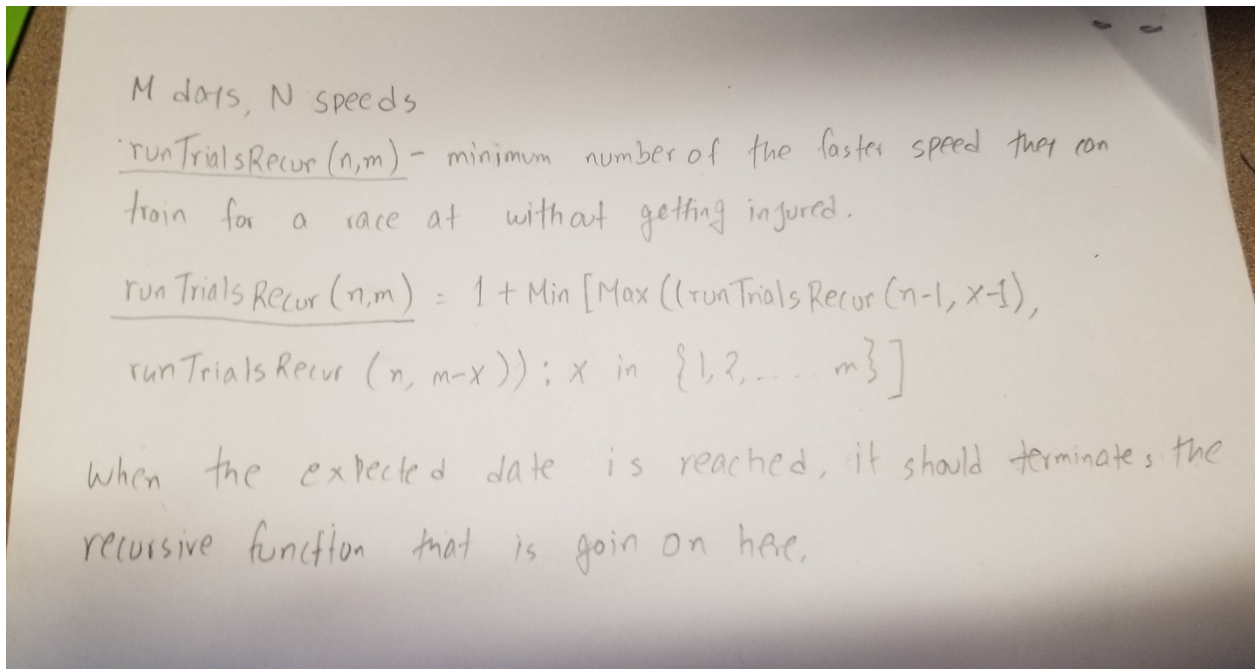 M days, N speeds
runTrialsRecur (n,m) - minimum number of the faster speed they can
train for a race at without getting injured.
run Trials Recur (n,m) = 1 + Min [Max ((run Trials Recur (n-1, x-1),
run Trials Recur (n, m-x)) ; x in {1,2,.... m}]
When the expected date is reached, it should terminates the
recursive function that is goin on here.